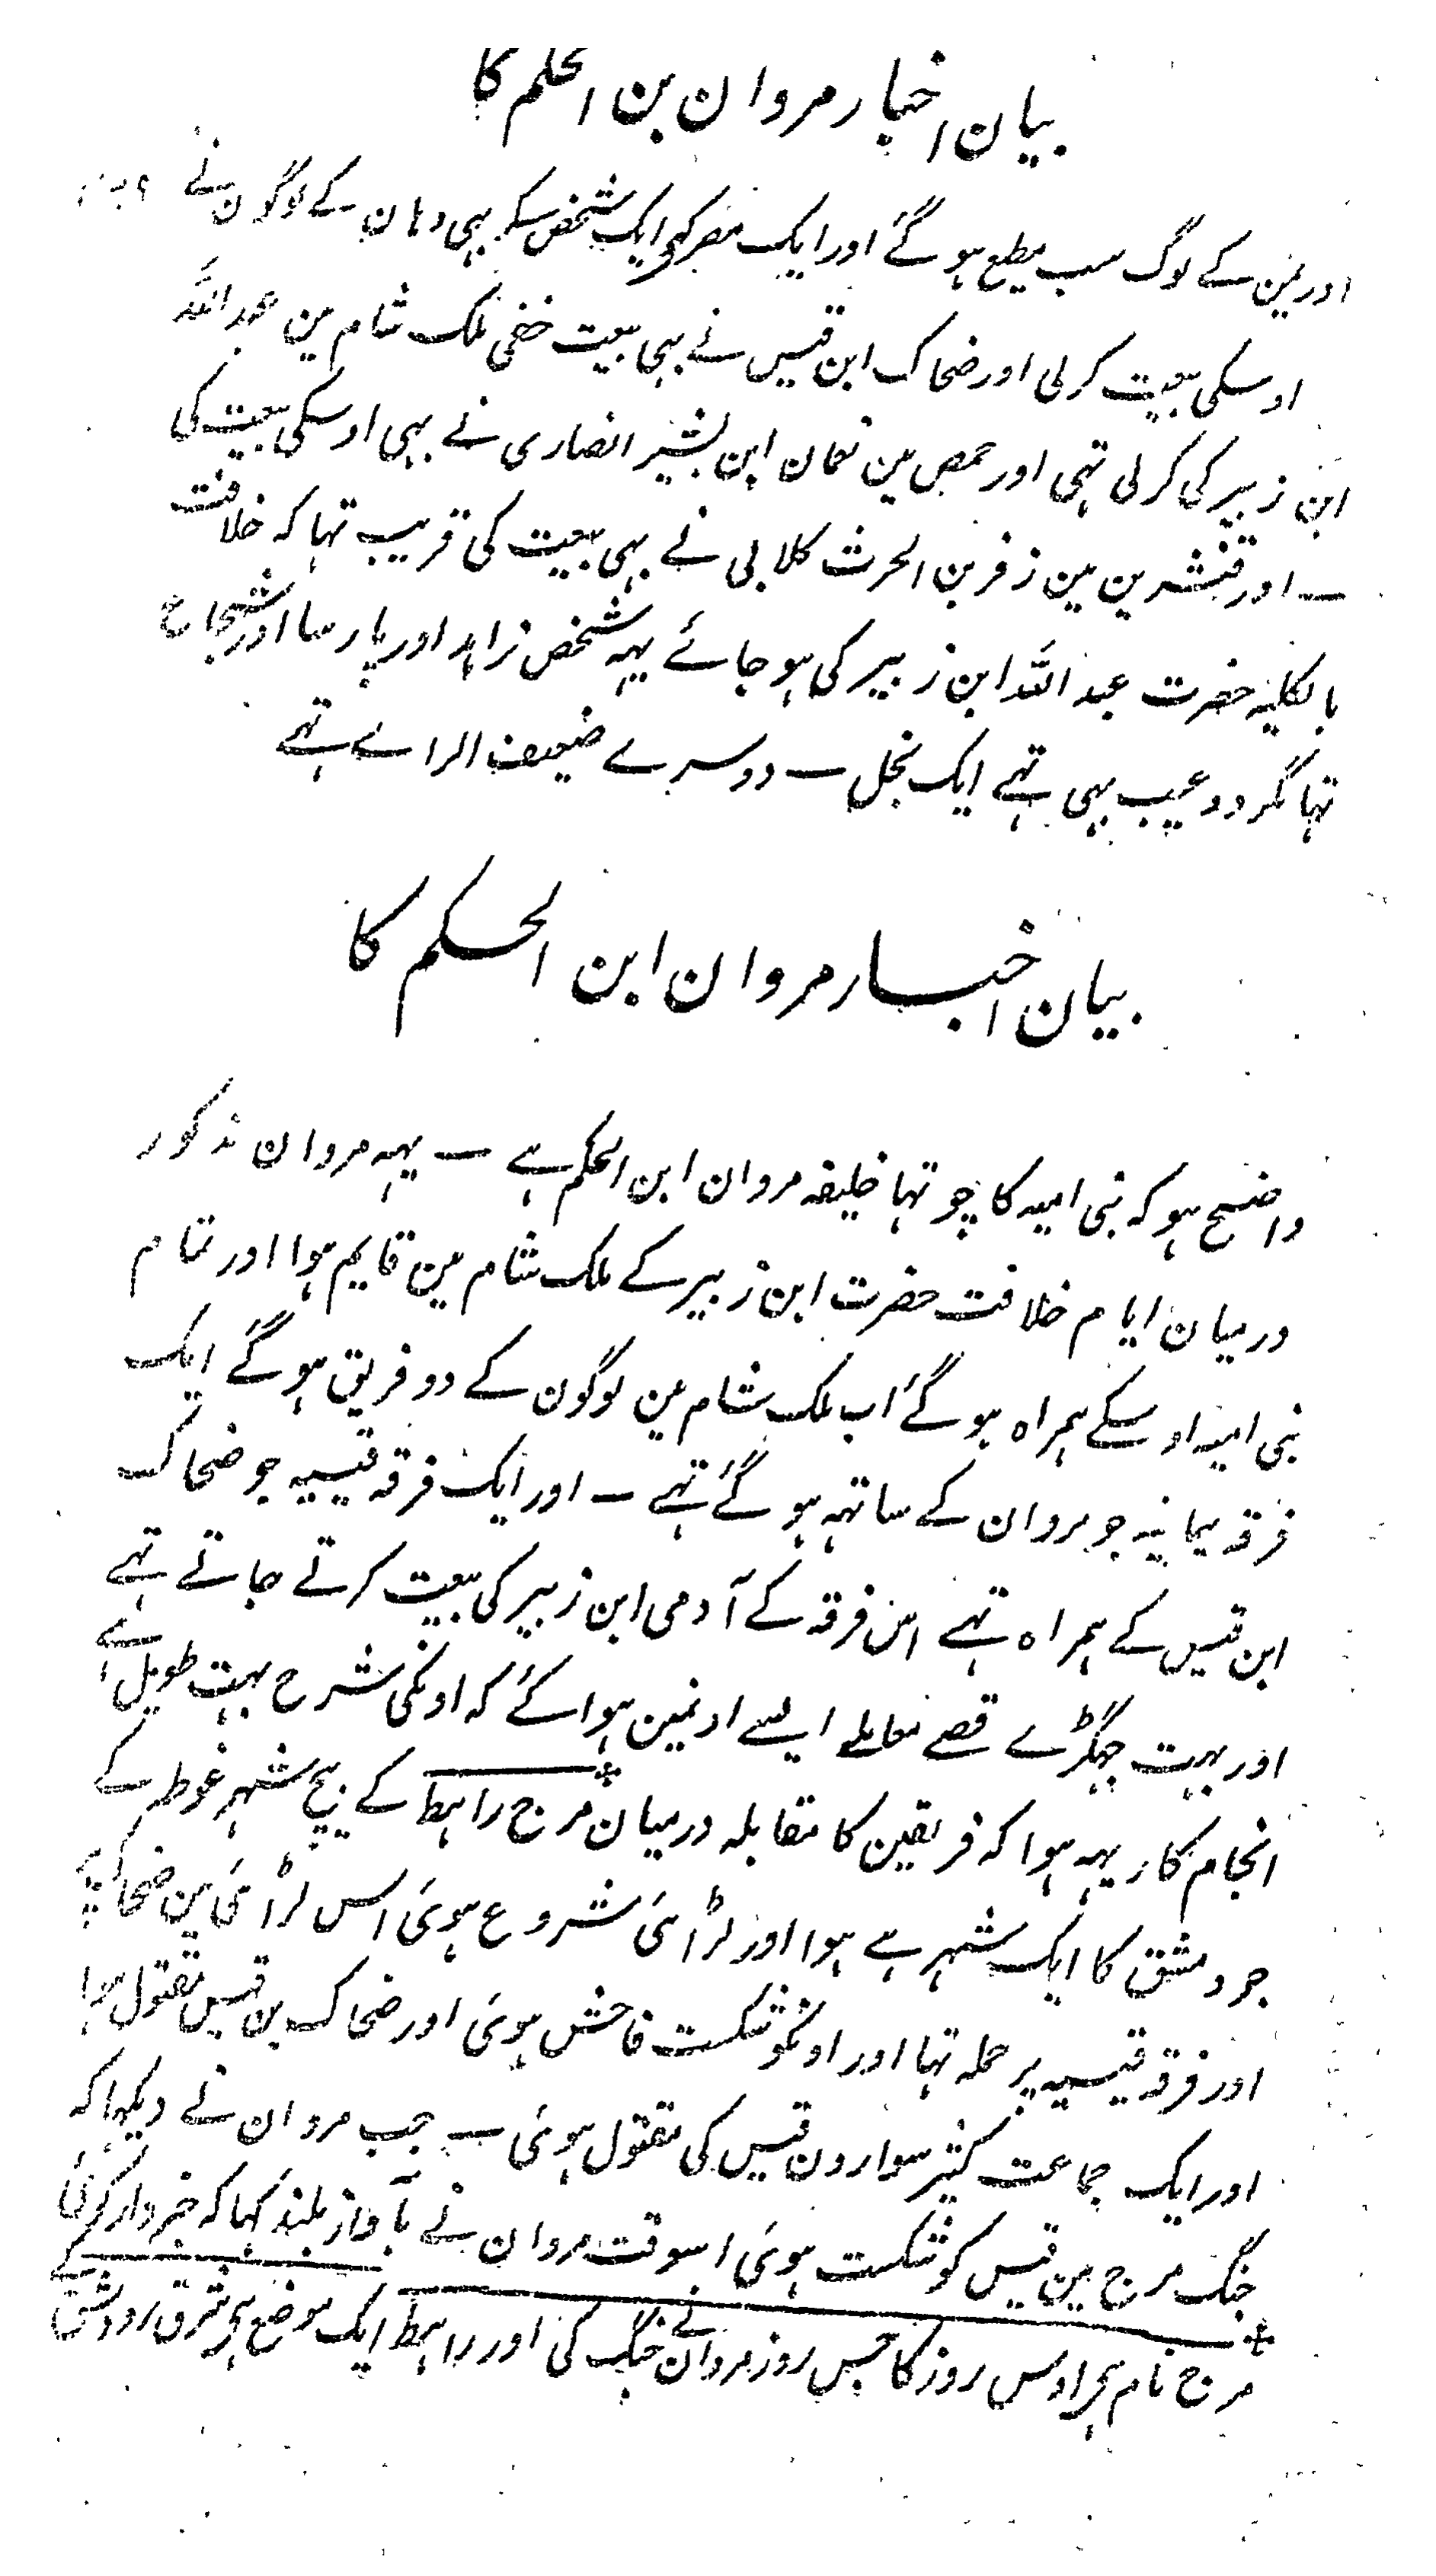 بیان اخبار مروان بن الحکم کا
اور یمن کے لوگ سب مطیع ہو گئے اور ایک مصر کو ایک شخص کے بہی وہان کے لوگون نے
اوسکی بیعت کر لی اور ضحاک ابن قیس نے بہی بیعت خفی ملک شام مین عبد اللہ
ابن زبیر کی کر لی تہی اور حمص مین نعمان ابن بشیر انصاری نے بہی اوسکی بیعت کی
ـ اور قنشرین مین زفر بن الحرث کلابی نے بہی بیعت کی قریب تہا کہ خلافت
بالکلیہ حضرت عبد اللہ ابن زبیر کی ہو جائے یہہ شخص زاہد اور پارسا اور شجاع
تہا مگر دو عیب بہی تہے ایک بخل ـ دوسرے ضعیف الراے تہے
بیان اخبار مروان ابن الحکم کا
واضح ہو کہ بنی امیہ کا چوتہا خلیفہ مروان ابن الحکم ہے ـ یہہ مروان مذکور
درمیان ایام خلافت حضرت ابن زبیر کے ملک شام مین قایم ہوا اور تمام
بنی امیہ اوسکے ہمراہ ہو گئے اب ملک شام مین لوگون کے دو فریق ہو گے ایک
فرقہ یمانیہ جو مروان کے ساتہہ ہو گئے تہے ـ اور ایک فرقہ قیسیہ جو ضحاک
ابن قیس کے ہمراہ تہے اس فرقہ کے آدمی ابن زبیر کی بیعت کرتے جاتے تہے
اور بہت جہگڑے قصے معاملے ایسے اونمین ہوا کئے کہ اونکی شرح بہت طویل ہے
انجام کار یہہ ہوا کہ فریقین کا مقابلہ درمیان مرج راہط کے بیچ شہر غوطہ کے
جو دمشق کا ایک شہر ہے ہوا اور لڑائی شروع ہوئی اس لڑائی مین ضحاک پر
اور فرقہ قیسیہ پر حملہ تہا اور اونکو شکست فاحش ہوئی اور ضحاک بن قیس مقتول ہوا
اور ایک جماعت کثیر سوارون قیس کی مقتول ہوئی ـ جب مروان نے دیکہا کہ
جنگ مرج مین قیس کو شکست ہوئی اسوقت مروان نے بآواز بلند کہا کہ خبردار کوئی
مرج نام ہی اوس روز کا جس روز مروان نے جنگ کی اور راہط ایک موضع ہی شرق رو دمشق کے